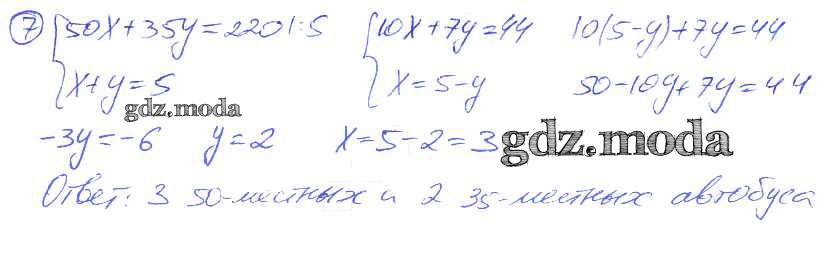 ⑦ { 50x+35y=220 |:5 { 10x+7y=44 10(5-y)+7y=44
x+y=5 x=5-y 50-10y+7y=44
gdz.moda
-3y=-6 y=2 x=5-2=3 gdz.moda
Ответ: 3 50-местных и 2 35-местных автобуса